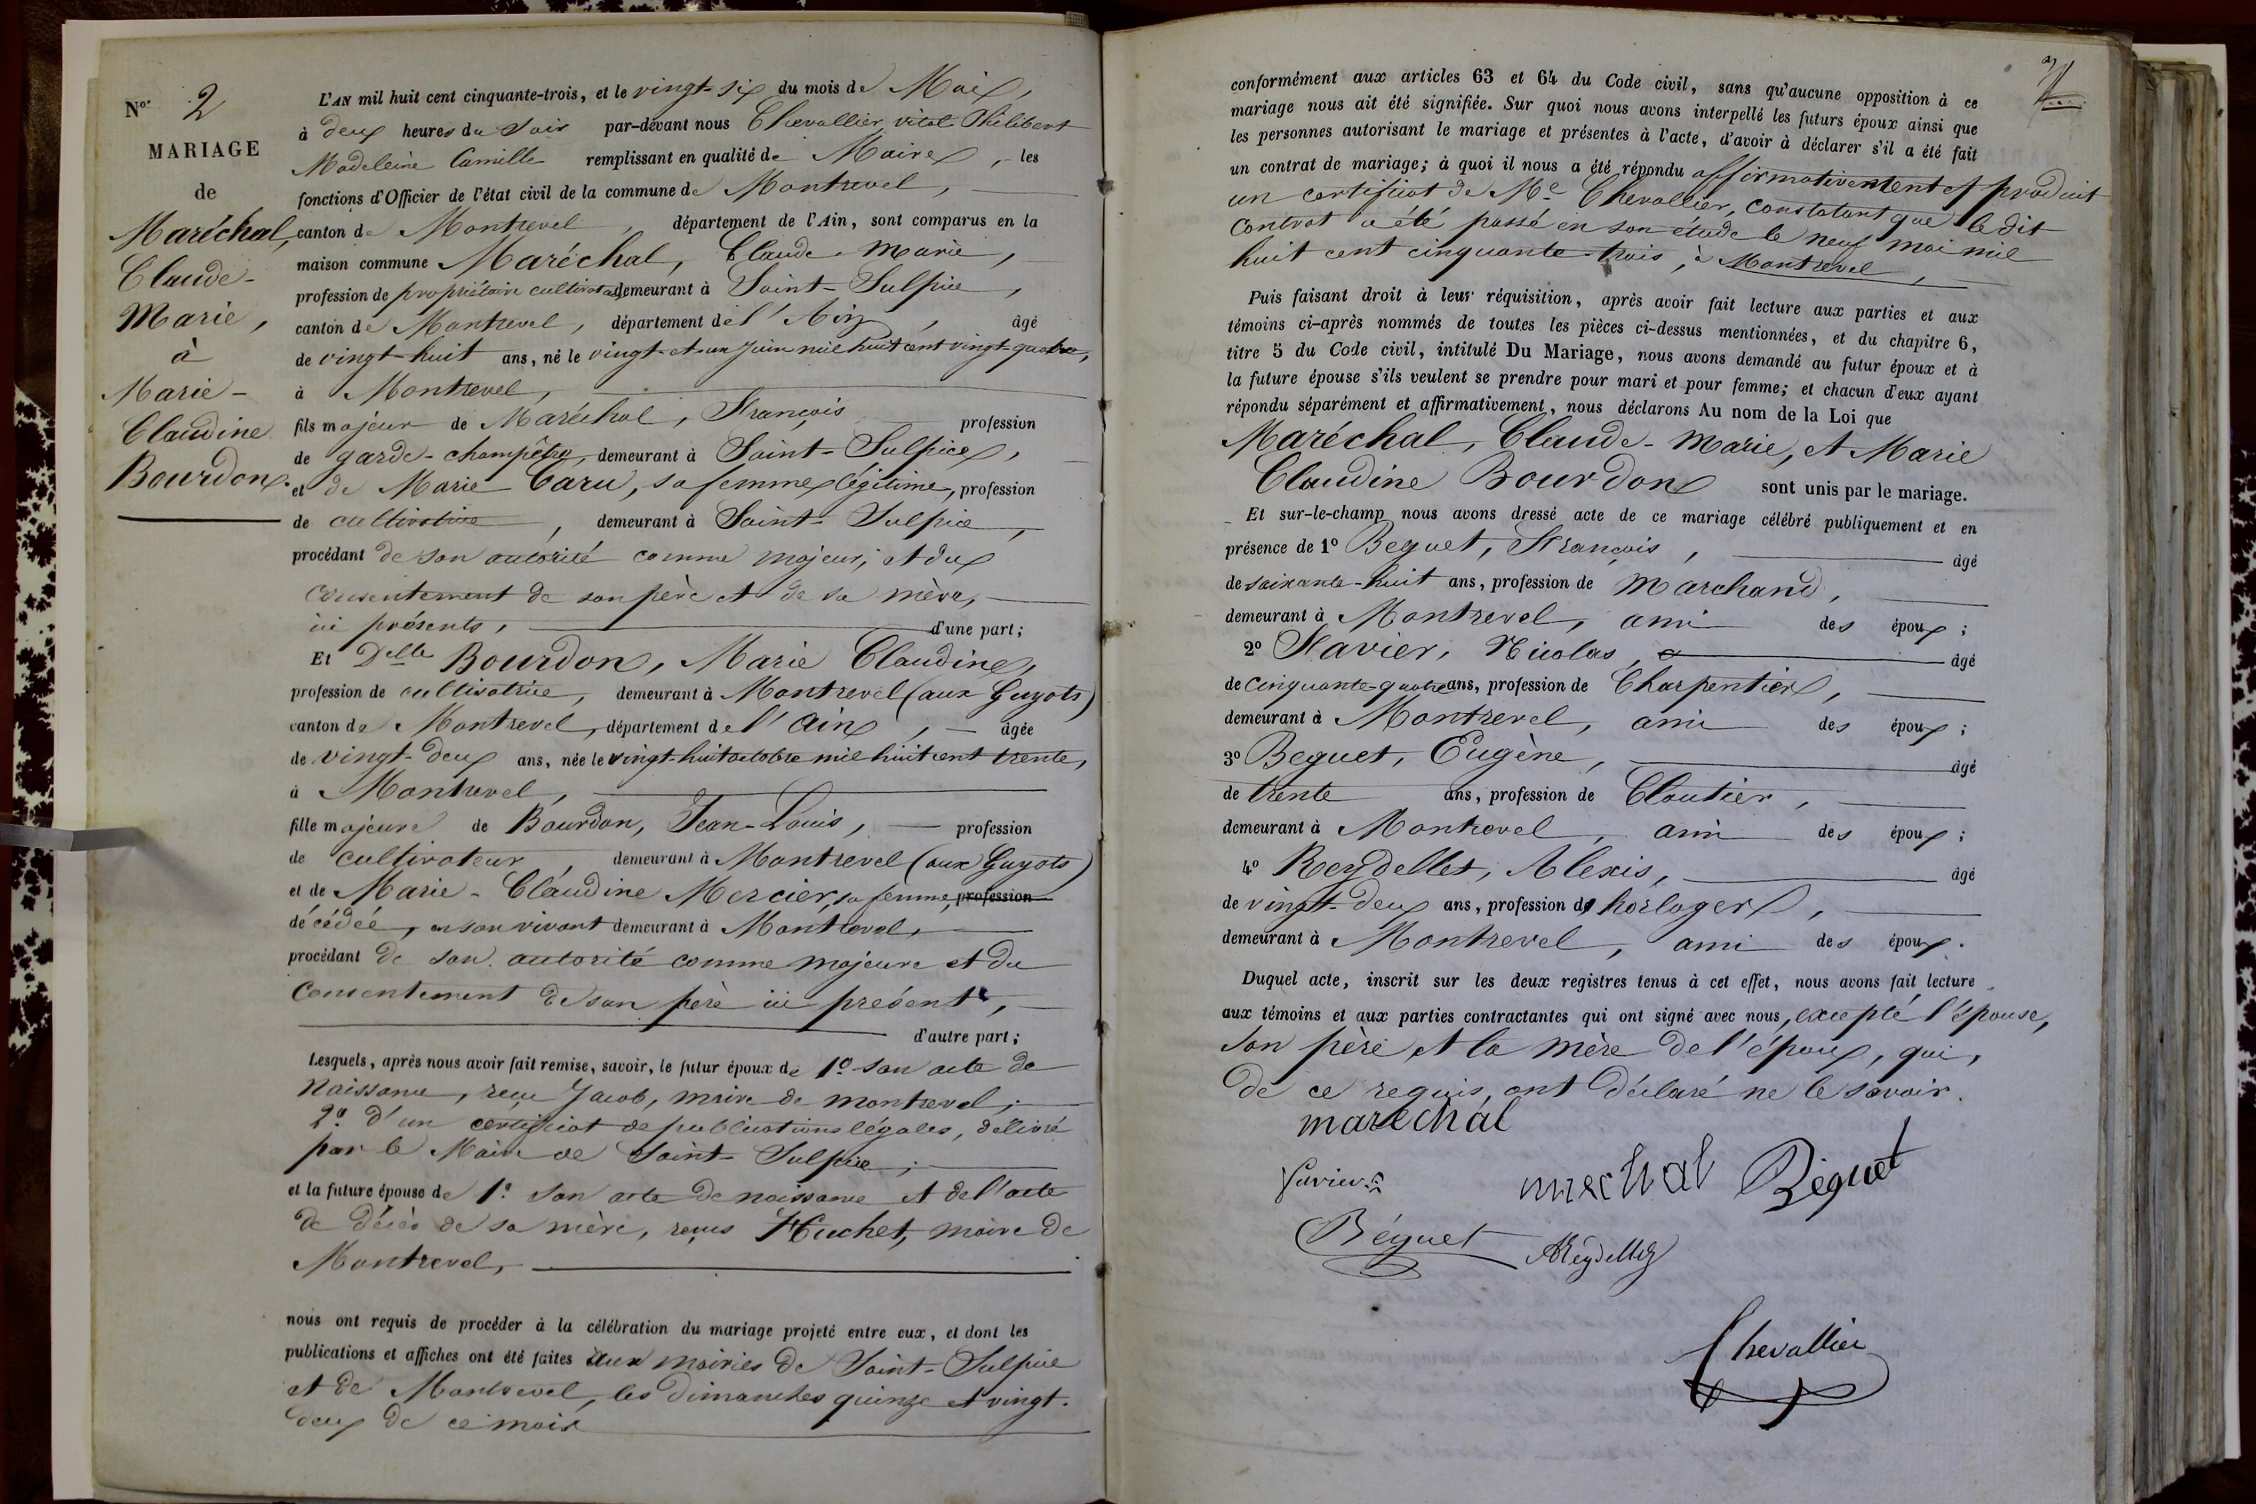 N° 2
MARIAGE
de
Maréchal,
Claude-
Marie,
à
Marie-
Claudine
Bourdon.
L'AN mil huit cent cinquante-trois, et le vingt-six du mois de Mai,
à deux heures du soir par-devant nous Chevallier vital Philibert
Madeleine Camille remplissant en qualité de Maire, les
fonctions d'Officier de l'état civil de la commune de Montrevel,
canton de Montrevel, département de l'Ain, sont comparus en la
maison commune Maréchal, Claude-Marie,
profession de propriétaire cultivateur demeurant à Saint-Sulpice,
canton de Montrevel, département de l'Ain, âgé
de vingt-huit ans, né le vingt-et-un Juin mil huit cent vingt-quatre,
à Montrevel,
fils majeur de Maréchal, François profession
de garde-champêtre, demeurant à Saint-Sulpice,
et de Marie Caru, sa femme légitime, profession
de cultivatrice, demeurant à Saint-Sulpice,
procédant de son autorité comme majeur, et du
consentement de son père et de sa mère,
ici présents, d'une part;
Et Delle Bourdon, Marie Claudine,
profession de cultivatrice, demeurant à Montrevel (aux Guyots)
canton de Montrevel, département de l'Ain, âgée
de vingt-deux ans, née le vingt-huit octobre mil huit cent trente,
à Montrevel,
fille majeure de Bourdon, Jean-Louis, profession
de cultivateur, demeurant à Montrevel (aux Guyots)
et de Marie-Claudine Mercier, sa femme, profession
décédée, en son vivant demeurant à Montrevel,
procédant de son autorité comme majeure et du
consentement de son père ici présent,
d'autre part;
Lesquels, après nous avoir fait remise, savoir, le futur époux de 1° son acte de
naissance, reçu Jacob, maire de montrevel;
2° d'un certificat de publications légales, délivré
par le Maire de Saint-Sulpice;
et la future épouse de 1° son acte de naissance et de l'acte
de décès de sa mère, reçus Huchet, maire de
Montrevel,
nous ont requis de procéder à la célébration du mariage projeté entre eux, et dont les
publications et affiches ont été faites aux mairies de Saint-Sulpice
et de Montrevel, les dimanches quinze et vingt-
deux de ce mois
conformément aux articles 63 et 64 du Code civil, sans qu'aucune opposition à ce
mariage nous ait été signifiée. Sur quoi nous avons interpellé les futurs époux ainsi que
les personnes autorisant le mariage et présentes à l'acte, d'avoir à déclarer s'il a été fait
un contrat de mariage; à quoi il nous a été répondu affirmativement et produit
un certificat de Me Chevallier, constatant que le dit
contrat a été passé en son étude le neuf mai mil
huit cent cinquante-trois, à Montrevel,
Puis faisant droit à leur réquisition, après avoir fait lecture aux parties et aux
témoins ci-après nommés de toutes les pièces ci-dessus mentionnées, et du chapitre 6,
titre 5 du Code civil, intitulé Du Mariage, nous avons demandé au futur époux et à
la future épouse s'ils veulent se prendre pour mari et pour femme; et chacun d'eux ayant
répondu séparément et affirmativement, nous déclarons Au nom de la Loi que
Maréchal, Claude-Marie, et Marie
Claudine Bourdon sont unis par le mariage.
Et sur-le-champ nous avons dressé acte de ce mariage célébré publiquement et en
présence de 1° Beguet, François, âgé
de soixante-huit ans, profession de marchand,
demeurant à Montrevel, ami des époux;
2° Favier, Nicolas, âgé
de cinquante-quatre ans, profession de Charpentier,
demeurant à Montrevel, ami des époux;
3° Beguet, Eugène, âgé
de trente ans, profession de Cloutier,
demeurant à Montrevel, ami des époux;
4° Reydellet, Alexis, âgé
de vingt-deux ans, profession d'horloger,
demeurant à Montrevel, ami des époux.
Duquel acte, inscrit sur les deux registres tenus à cet effet, nous avons fait lecture
aux témoins et aux parties contractantes qui ont signé avec nous, excepté l'épouse,
son père et la mère de l'époux, qui,
de ce requis, ont déclaré ne le savoir.
marechal
Favier
marchal Béguet
Béguet AReydellet
Chevallier